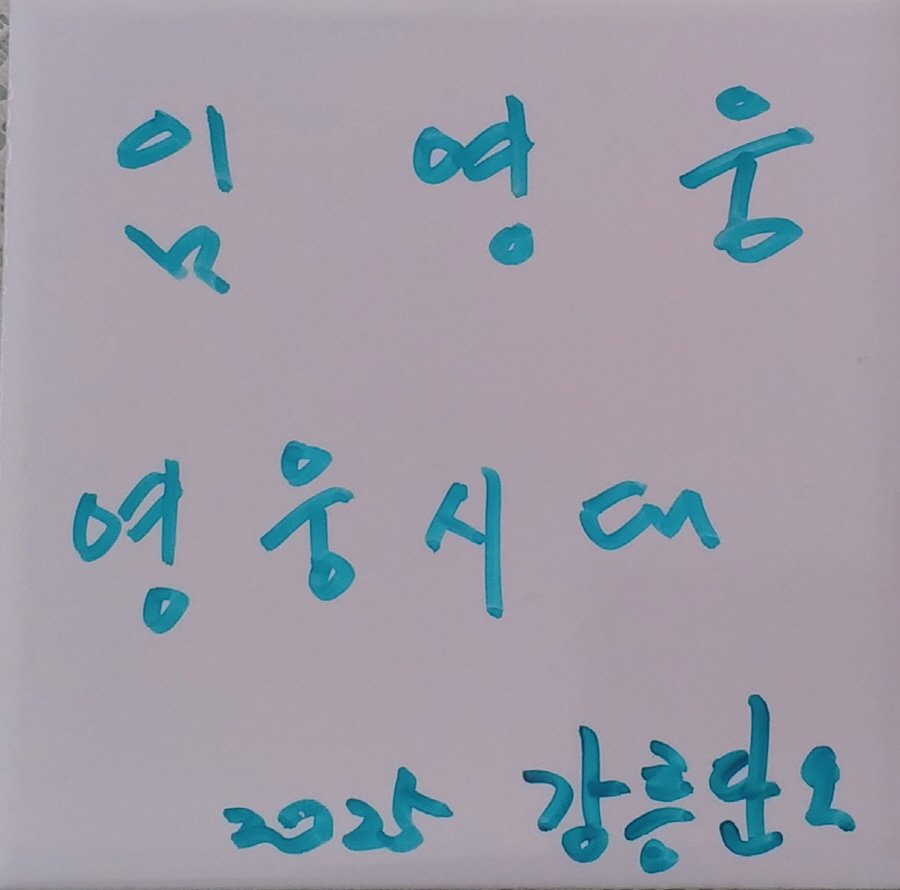 임 영 웅
영웅시대
2025 강흥만오